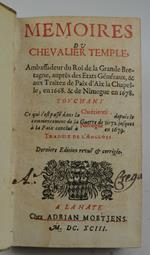 MEMOIRES
DU
CHEVALIER TEMPLE,
Ambassadeur du Roi de la Grande Bre-
tagne, auprès des Etats Généraux, &
aux Traitez de Paix d'Aix la Chapel-
le, en 1668. & de Nimegue en 1678.
TOUCHANT
Ce qui s'est passé dans la Chrétienté, depuis le
commencement de la Guerre de 1672. jusques
à la Paix conclue à Nimegue en 1679.
TRADUIT DE L'ANGLOIS.
Derniere Edition revuë & corrigée.
A LA HAYE
Chez ADRIAN MOETJENS.
M. DC. XCIII.